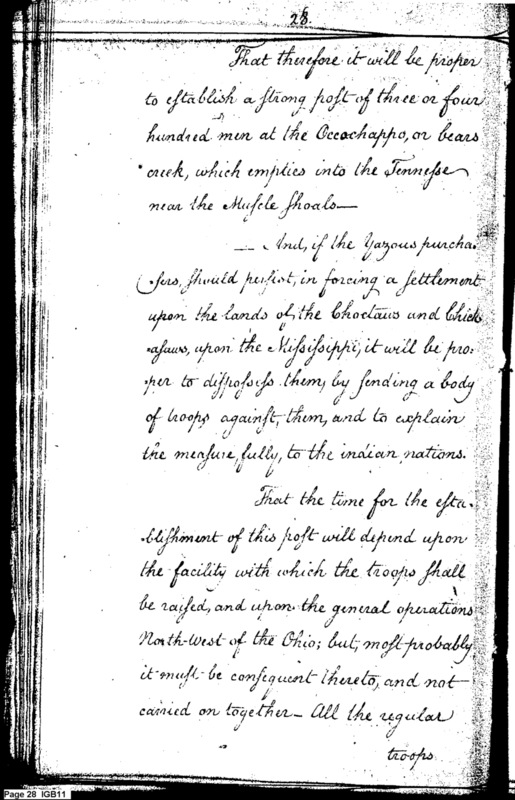 28.
That therefore it will be proper
to eſtabliſh a ſtrong poſt of three or four
hundred men at the Occochappo, or bears
creek, which empties into the Tenneſse
near the Muſcle ſhoals—
— And, if the Yazous purcha-
-ſers, ſhould perſiſt, in forcing a ſettlement
upon the lands of, the Choctaws and Chick
-aſaws, upon the Miſsiſsippi, it will be pro-
-per to diſpoſseſs them, by ſending a body
of troops againſt, them, and to explain
the meaſure, fully, to the indian nations.
That the time for the eſta-
-bliſhment of this poſt will depend upon
the facility with which the troops ſhall
be raiſed, and upon the general operations
North-West of the Ohio; but, moſt probably,
it muſt be conſequent thereto, and not
carried on together— All the regular
troops
Page 28 IGB11